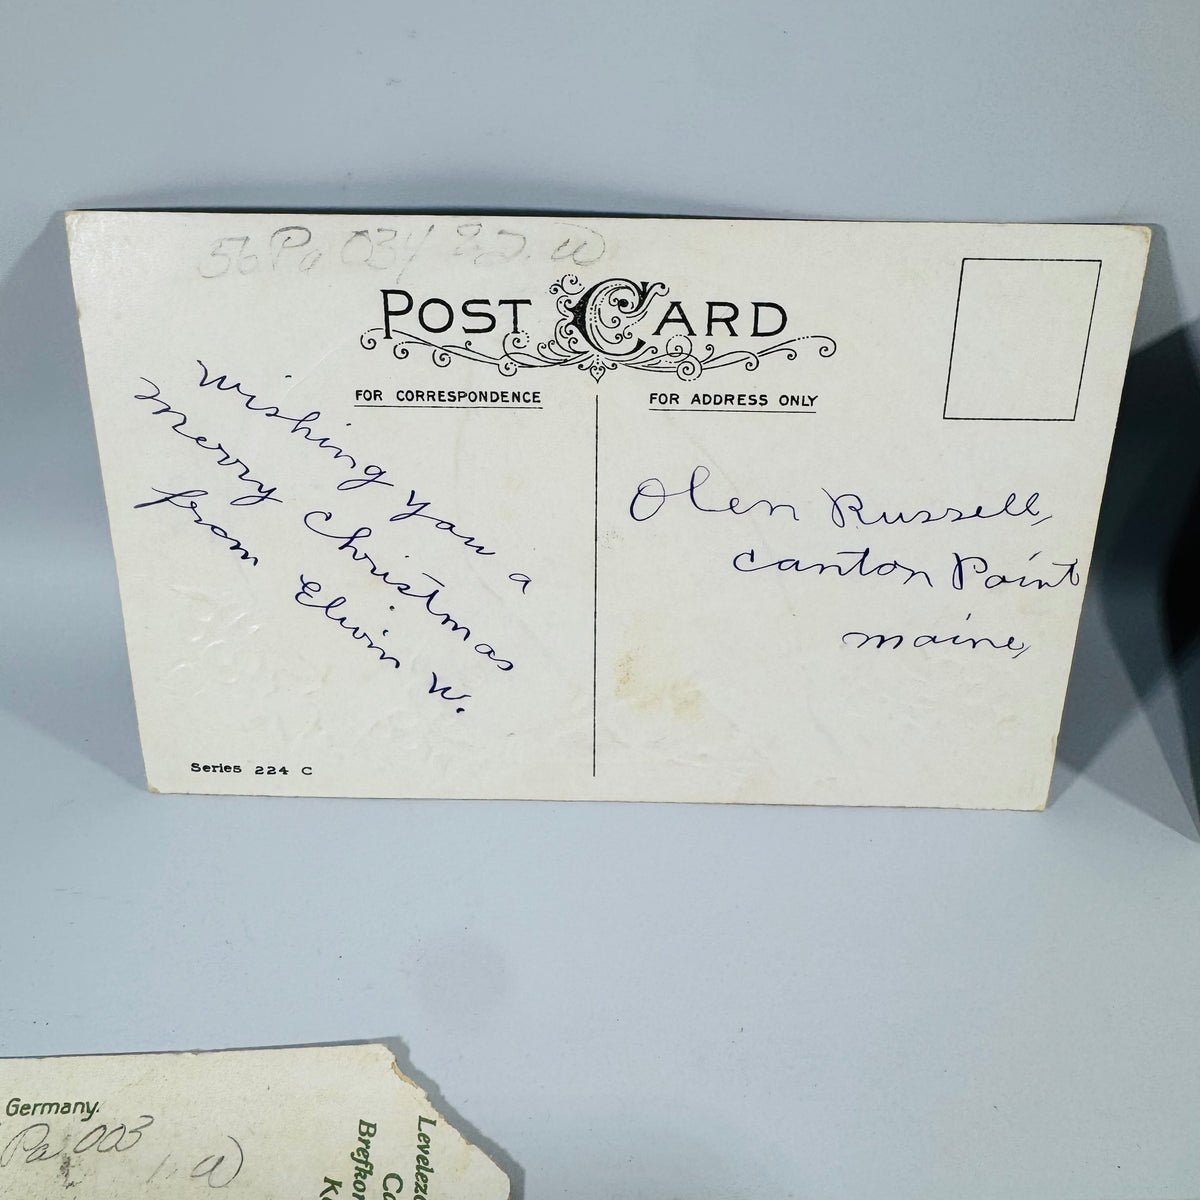 56 Pa 034
POST CARD
FOR CORRESPONDENCE
FOR ADDRESS ONLY
Wishing you a
Merry Christmas
from Elwin W.
Olen Russell,
Canton Point
Maine,
Series 224 C
Germany.
Pa 003